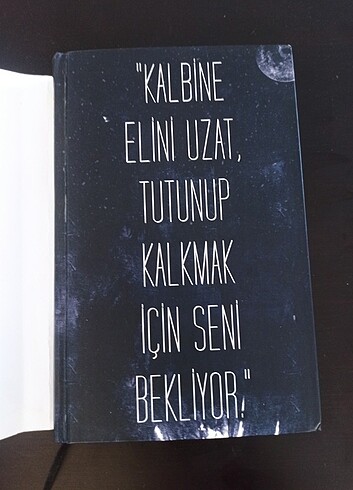 "KALBİNE
ELİNİ UZAT,
TUTUNUP
KALKMAK
İÇİN SENİ
BEKLİYOR."